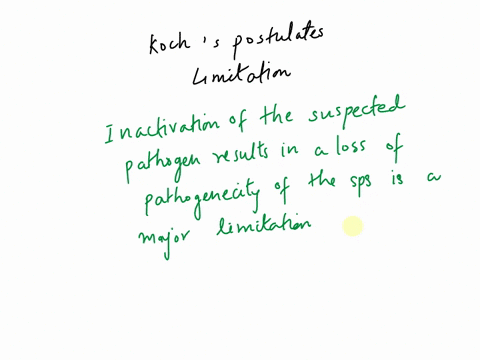 Koch's postulates
Limitation
Inactivation of the suspected
pathogen results in a loss of
pathogenecity of the sps is a
major limitation